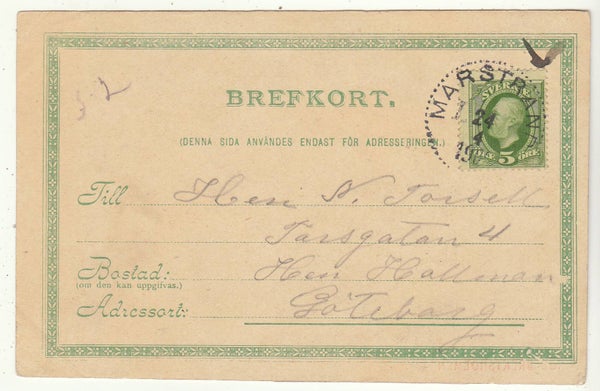 BREFKORT.
(DENNA SIDA ANVÄNDES ENDAST FÖR ADRESSERINGEN.)
MARSTRAND
24
4
19
SVERIGE
5 ÖRE
Till Herr N. Torsell
Torsgatan 4
Bostad: Herr Hallman
(om den kan uppgifvas.)
Adressort: Göteborg